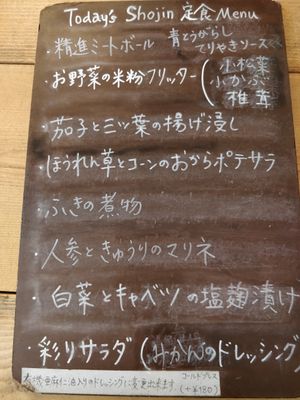 Today's Shojin 定食 Menu
・精進ミートボール 青とうがらしてりやきソース
・お野菜の米粉フリッター(小松菜 小かぶ 椎茸
・茄子と三ッ葉の揚げ浸し
・ほうれん草とコーンのおからポテサラ
・ふきの煮物
・人参ときゅうりのマリネ
・白菜とキャベツの塩麹漬け
・彩りサラダ(みかんのドレッシング)
有機亜麻仁油入りのドレッシングに変更出来ます コールドプレス (+¥180)